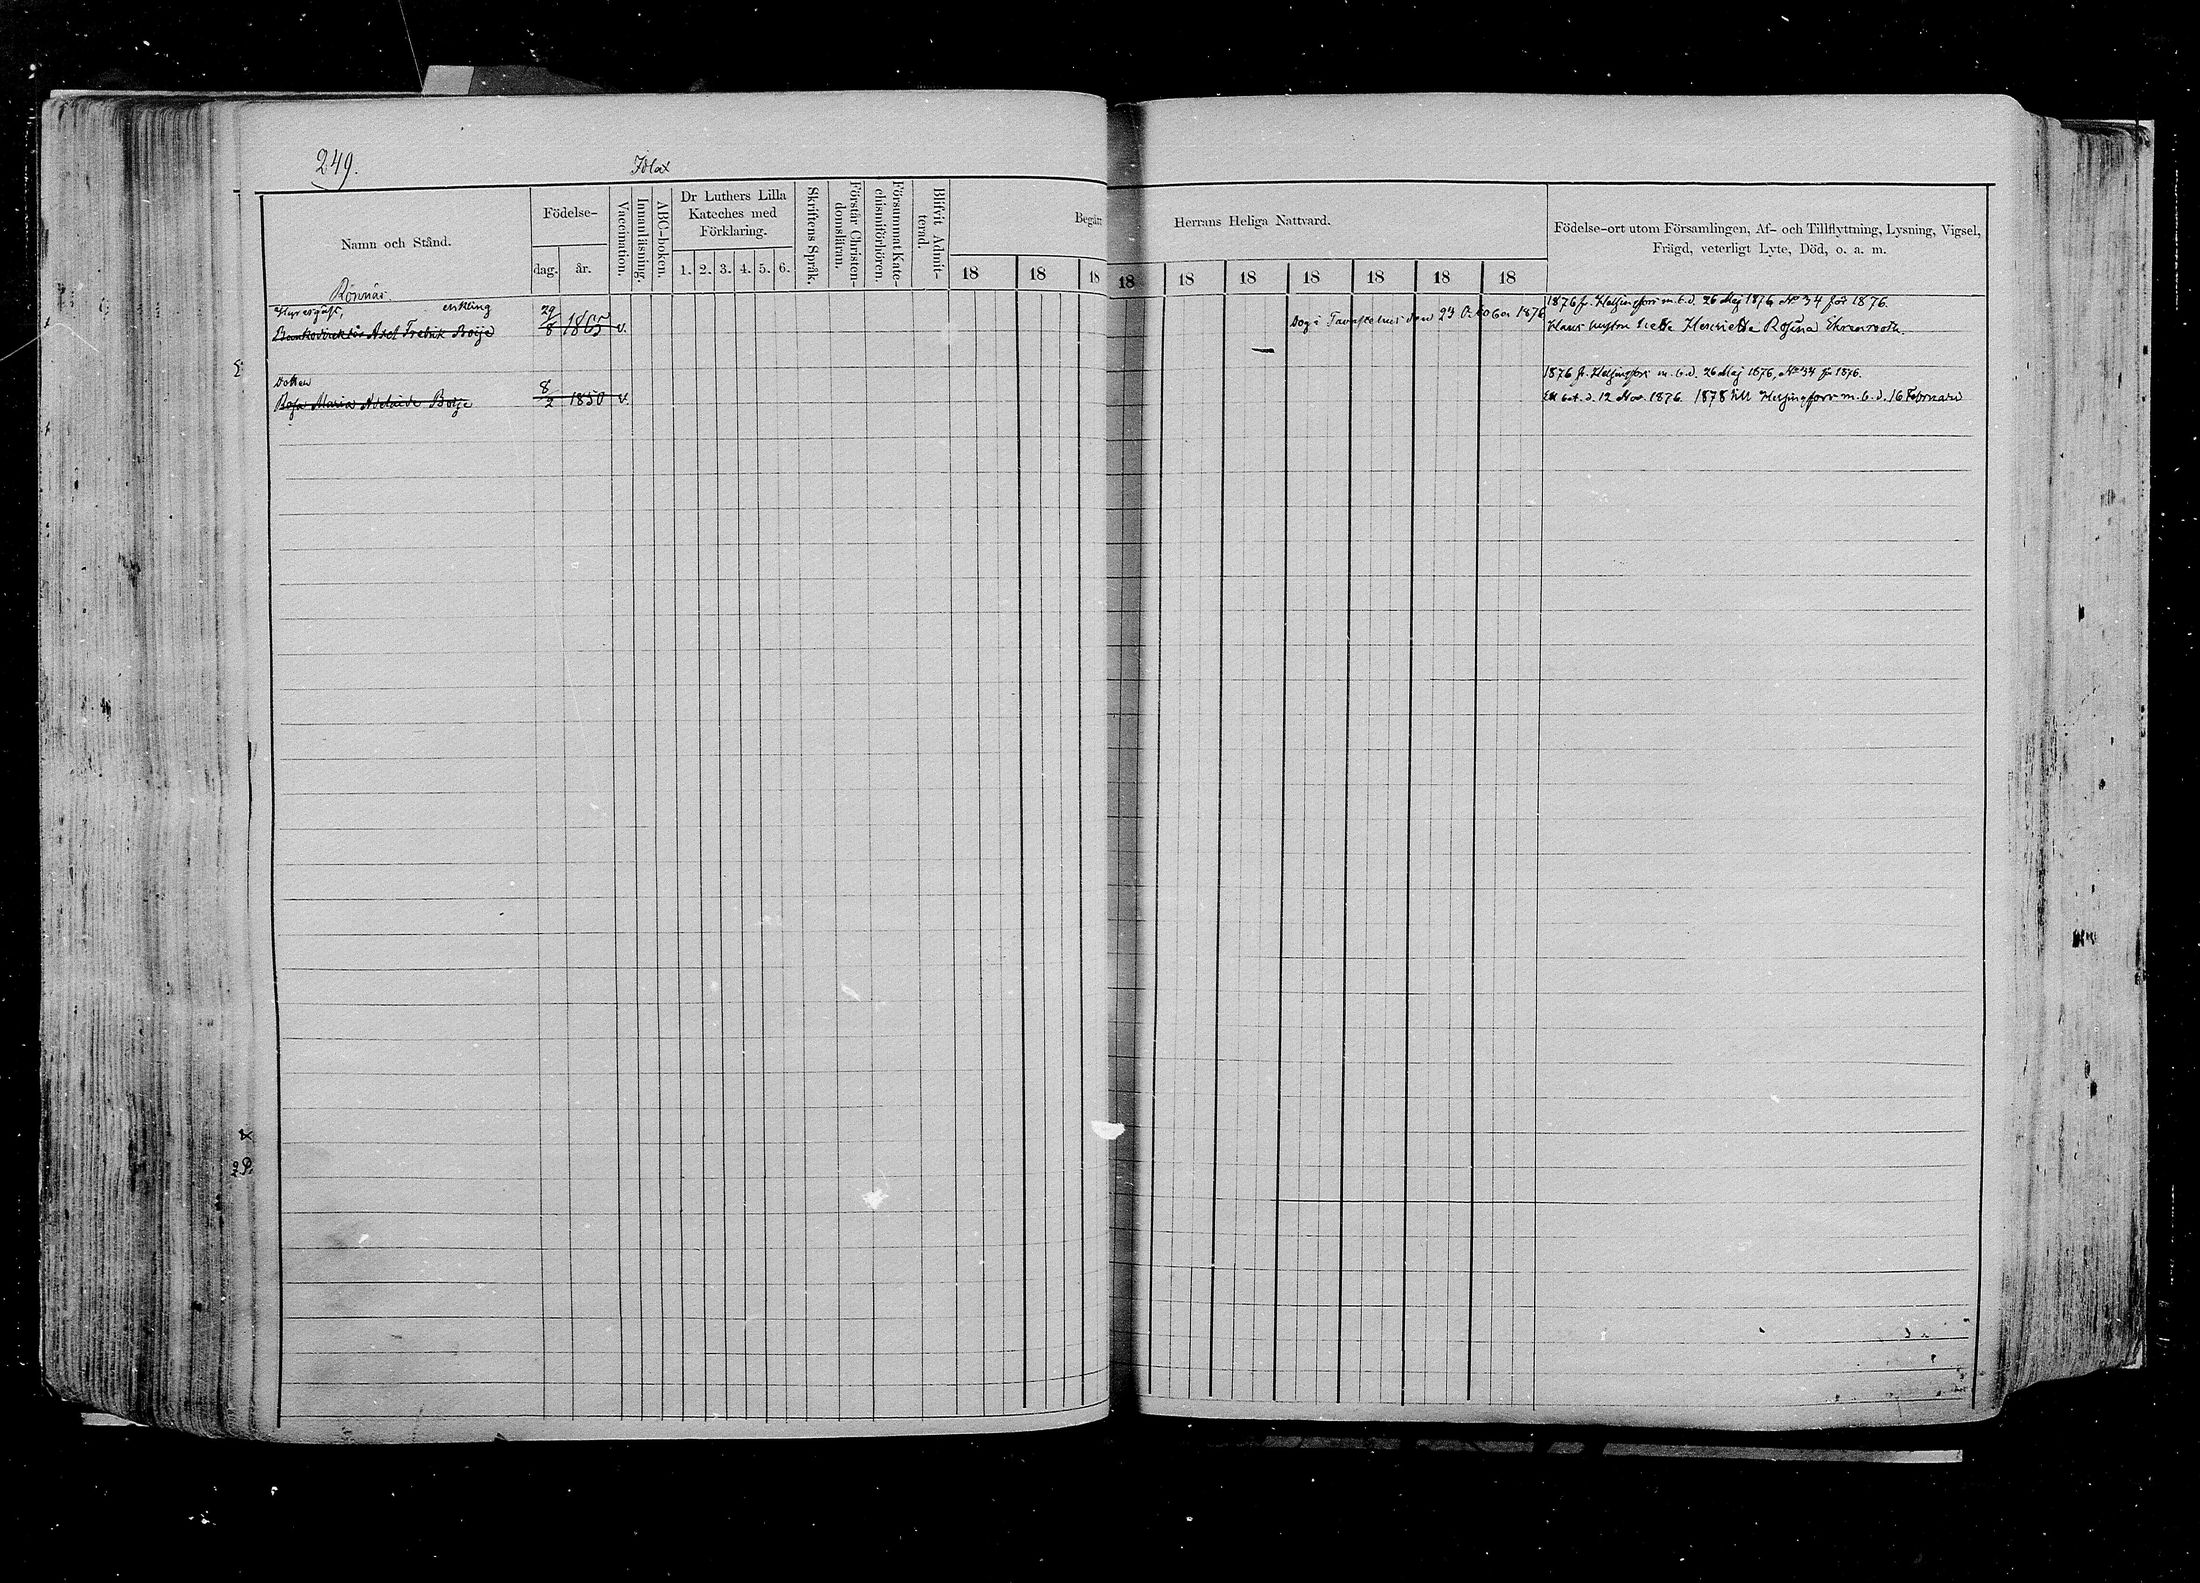 249.
Namn och Stånd.
Födelse-
dag.
år.
Vaccination.
Innanläsning.
ABC-boken.
Dr Luthers Lilla
Kateches med
Förklaring.
1. 2. 3. 4. 5. 6.
Skriftens Språk.
Förstår Christen-
domsläran.
Försummat Kate-
chismiförhören.
Blifvit Admit-
terad.
Begått
18 18 18
Rönnäs.
enkling
Bankodirektör Axel Fredrik Boije
29/8 v.
Dottern
Rosa Maria Adelaide Boije
8/2 1850 v.
Herrans Heliga Nattvard.
18 18 18 18 18 18 18
Födelse-ort utom Församlingen, Af- och Tillflyttning, Lysning, Vigsel,
Frägd, veterligt Lyte, Död, o. a. m.
1876 fr. Helsingfors m. b. d. 26 Maj 1876, No 34 för 1876.
Dog i Tavastehus den 23 October 1876
Hans hustru Henrietta Rosina Ehrenrooth.
1876 fr. Helsingfors m. b. d. 26 Maj 1876, No 34 för 1876.
bet. d. 12 Nov. 1876. 1878 till Helsingfors m. b. d. 16 Februari